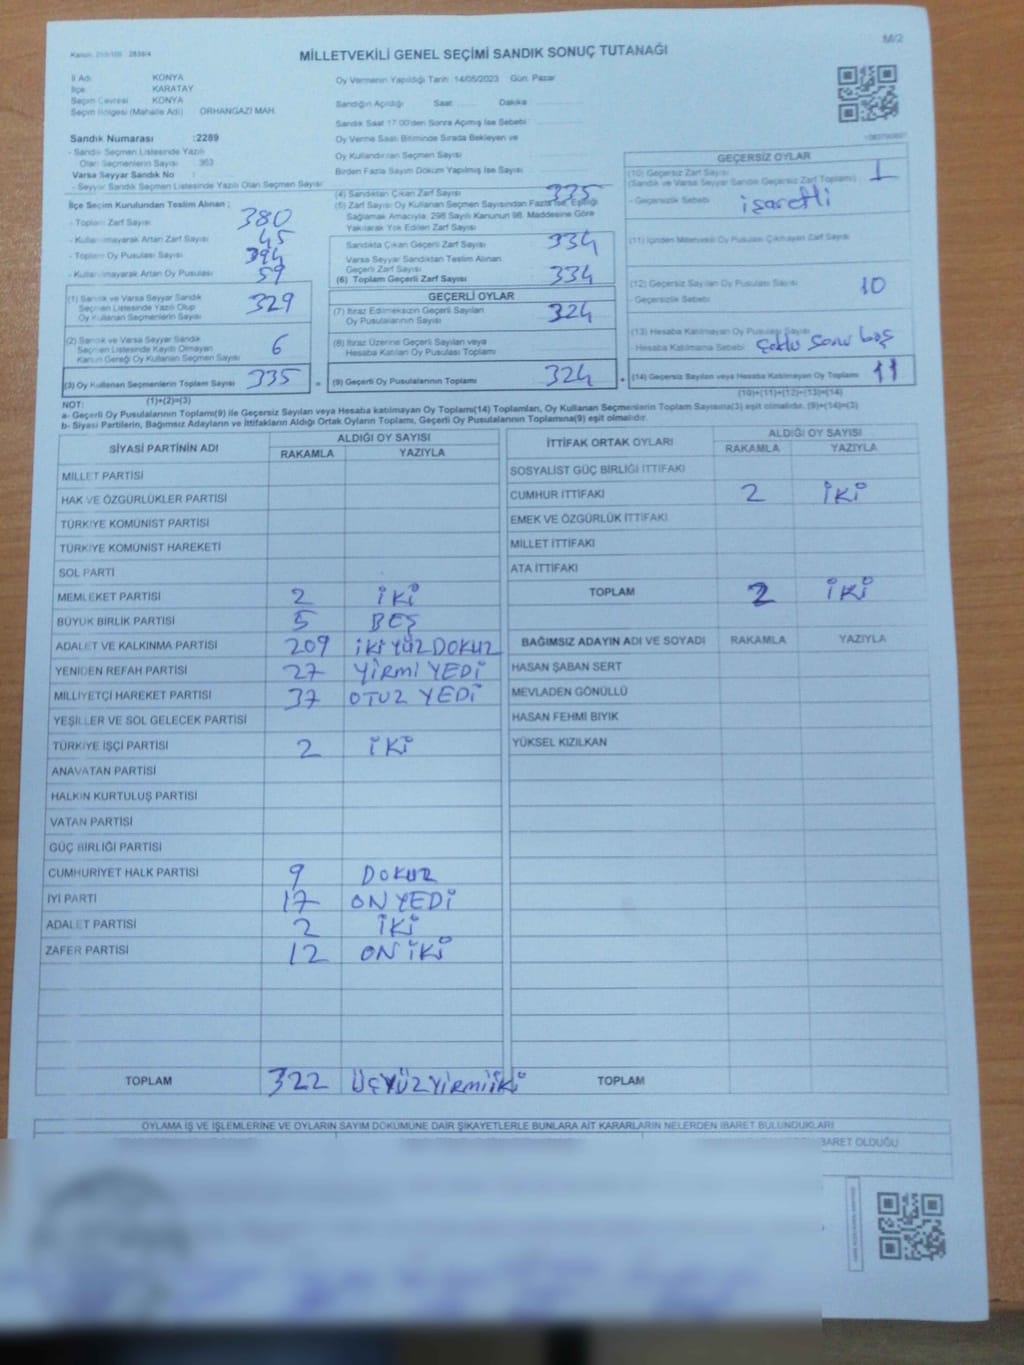 Kanun: 298/105 2839/4
M/2
MİLLETVEKİLİ GENEL SEÇİMİ SANDIK SONUÇ TUTANAĞI
İl Adı KONYA
İlçe KARATAY
Seçim Çevresi KONYA
Seçim Bölgesi (Mahalle Adı) ORHANGAZİ MAH.
Sandık Numarası :2289
- Sandık Seçmen Listesinde Yazılı
Olan Seçmenlerin Sayısı 363
Varsa Seyyar Sandık No :
- Seyyar Sandık Seçmen Listesinde Yazılı Olan Seçmen Sayısı :
İlçe Seçim Kurulundan Teslim Alınan ;
- Toplam Zarf Sayısı 380
- Kullanılmayarak Artan Zarf Sayısı 45
- Toplam Oy Pusulası Sayısı 394
- Kullanılmayarak Artan Oy Pusulası 59
(1) Sandık ve Varsa Seyyar Sandık
Seçmen Listesinde Yazılı Olup
Oy Kullanan Seçmenlerin Sayısı 329
(2) Sandık ve Varsa Seyyar Sandık
Seçmen Listesinde Kayıtlı Olmayan
Kanun Gereği Oy Kullanan Seçmen Sayısı 6
(3) Oy Kullanan Seçmenlerin Toplam Sayısı 335
(1)+(2)=(3)
Oy Vermenin Yapıldığı Tarih :14/05/2023 Gün: Pazar
Sandığın Açıldığı Saat Dakika
Sandık Saat 17:00'den Sonra Açılmış İse Sebebi :
Oy Verme Saati Bitiminde Sırada Bekleyen ve
Oy Kullandırılan Seçmen Sayısı :
Birden Fazla Sayım Döküm Yapılmış İse Sayısı :
(4) Sandıktan Çıkan Zarf Sayısı 335
(5) Zarf Sayısı Oy Kullanan Seçmen Sayısından Fazla İse, Eşitliği
Sağlamak Amacıyla; 298 Sayılı Kanunun 98. Maddesine Göre
Yakılarak Yok Edilen Zarf Sayısı
Sandıkta Çıkan Geçerli Zarf Sayısı 334
Varsa Seyyar Sandıktan Teslim Alınan
Geçerli Zarf Sayısı
(6) Toplam Geçerli Zarf Sayısı 334
GEÇERLİ OYLAR
(7) İtiraz Edilmeksizin Geçerli Sayılan
Oy Pusulalarının Sayısı 324
(8) İtiraz Üzerine Geçerli Sayılan veya
Hesaba Katılan Oy Pusulası Toplamı
(9) Geçerli Oy Pusulalarının Toplamı 324
GEÇERSİZ OYLAR
(10) Geçersiz Zarf Sayısı
(Sandık ve Varsa Seyyar Sandık Geçersiz Zarf Toplamı) : 1
- Geçersizlik Sebebi : işaretli
(11) İçinden Milletvekili Oy Pusulası Çıkmayan Zarf Sayısı
(12) Geçersiz Sayılan Oy Pusulası Sayısı 10
- Geçersizlik Sebebi
(13) Hesaba Katılmayan Oy Pusulası Sayısı
- Hesaba Katılmama Sebebi
(14) Geçersiz Sayılan veya Hesaba Katılmayan Oy Toplamı 11
(10)+(11)+(12)+(13)=(14)
NOT:
a- Geçerli Oy Pusulalarının Toplamı(9) ile Geçersiz Sayılan veya Hesaba katılmayan Oy Toplamı(14) Toplamları, Oy Kullanan Seçmenlerin Toplam Sayısına(3) eşit olmalıdır. (9)+(14)=(3)
b- Siyasi Partilerin, Bağımsız Adayların ve İttifakların Aldığı Ortak Oyların Toplamı, Geçerli Oy Pusulalarının Toplamına(9) eşit olmalıdır.
SİYASİ PARTİNİN ADI ALDIĞI OY SAYISI
RAKAMLA YAZIYLA
MİLLET PARTİSİ
HAK VE ÖZGÜRLÜKLER PARTİSİ
TÜRKİYE KOMÜNİST PARTİSİ
TÜRKİYE KOMÜNİST HAREKETİ
SOL PARTİ
MEMLEKET PARTİSİ 2 İKİ
BÜYÜK BİRLİK PARTİSİ 5 BEŞ
ADALET VE KALKINMA PARTİSİ 209 İKİ YÜZ DOKUZ
YENİDEN REFAH PARTİSİ 27 YİRMİ YEDİ
MİLLİYETÇİ HAREKET PARTİSİ 37 OTUZ YEDİ
YEŞİLLER VE SOL GELECEK PARTİSİ
TÜRKİYE İŞÇİ PARTİSİ 2 İKİ
ANAVATAN PARTİSİ
HALKIN KURTULUŞ PARTİSİ
VATAN PARTİSİ
GÜÇ BİRLİĞİ PARTİSİ
CUMHURİYET HALK PARTİSİ 9 DOKUZ
İYİ PARTİ 17 ON YEDİ
ADALET PARTİSİ 2 İKİ
ZAFER PARTİSİ 12 ON İKİ
TOPLAM 322 ÜÇYÜZ YİRMİ İKİ
İTTİFAK ORTAK OYLARI ALDIĞI OY SAYISI
RAKAMLA YAZIYLA
SOSYALİST GÜÇ BİRLİĞİ İTTİFAKI
CUMHUR İTTİFAKI 2 İKİ
EMEK VE ÖZGÜRLÜK İTTİFAKI
MİLLET İTTİFAKI
ATA İTTİFAKI
TOPLAM 2 İKİ
BAĞIMSIZ ADAYIN ADI VE SOYADI RAKAMLA YAZIYLA
HASAN ŞABAN SERT
MEVLADEN GÖNÜLLÜ
HASAN FEHMİ BIYIK
YÜKSEL KIZILKAN
TOPLAM
OYLAMA İŞ VE İŞLEMLERİNE VE OYLARIN SAYIM DÖKÜMÜNE DAİR ŞİKAYETLERLE BUNLARA AİT KARARLARIN NELERDEN İBARET BULUNDUKLARI
BARET OLDUĞU